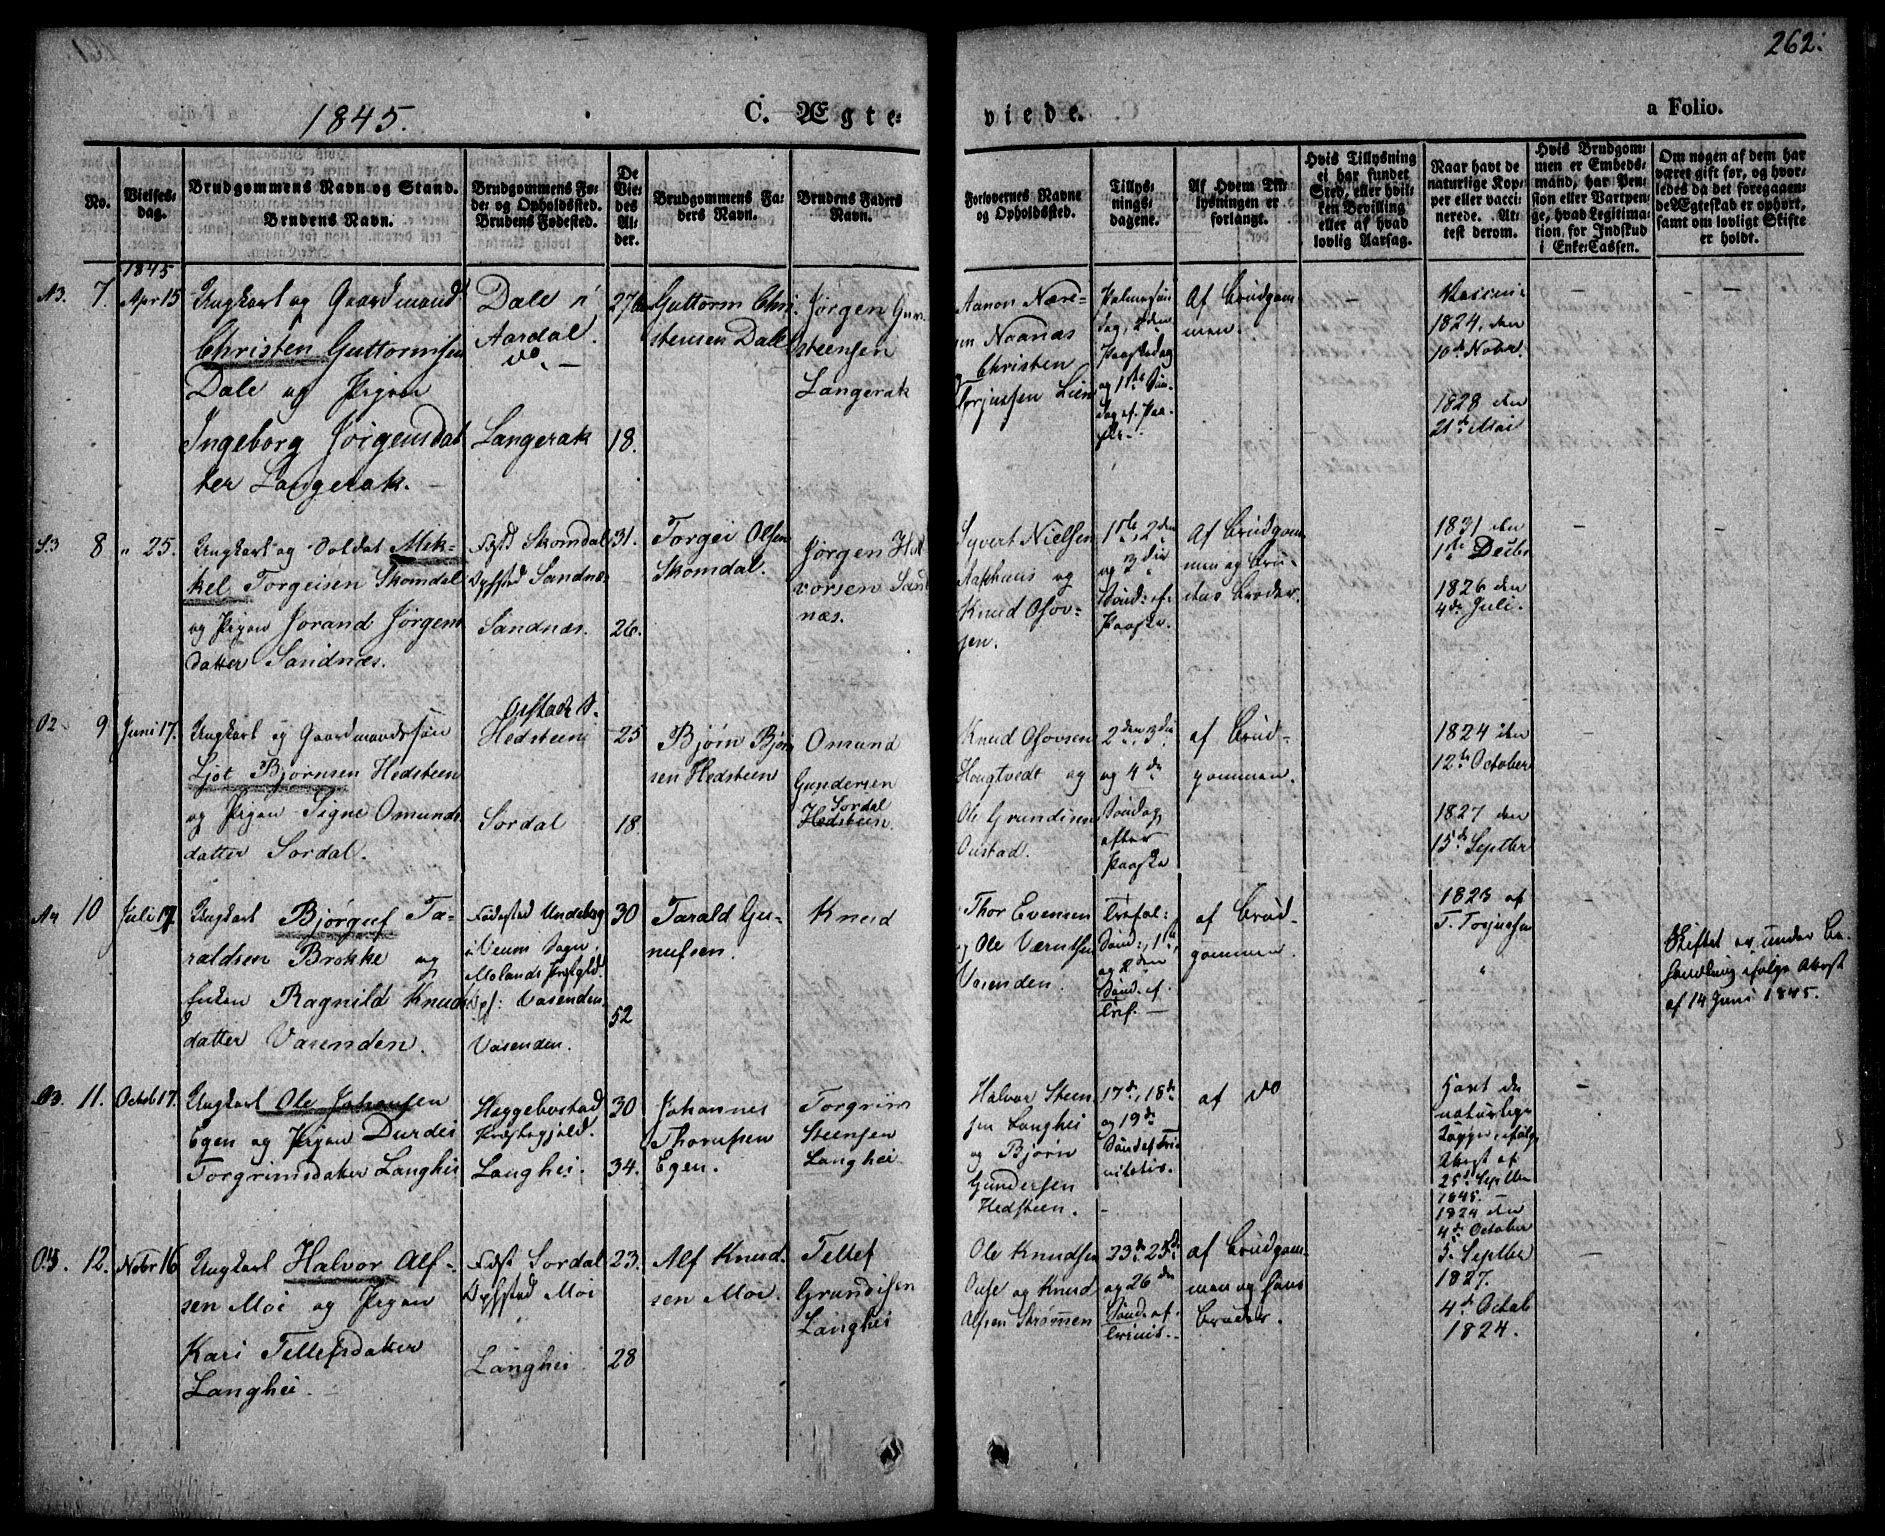 262.
1845.
C. Ægte-
viede.
a Folio.
No.
Vielses-
dag.
Brudgommens Navn og Stand.
Brudens Navn.
Brudgommens Fø-
de- og Opholdssted.
Brudens Fødested.
De
Vie-
des
Al-
der.
Brudgommens Fa-
ders Navn.
Brudens Faders
Navn.
Forlovernes Navne
og Opholdssted.
Tillys-
nings-
dagene.
Af Hvem Til-
lysningen er
forlangt.
Hvis Tillysning
ei har fundet
Sted, eller hvil-
ken Bevilling
eller af hvad
lovlig Aarsag.
Naar havt de
naturlige Kop-
per eller vacci-
nerede. At-
test derom.
Hvis Brudgom-
men er Embeds-
mand, har Pen-
sion eller Vartpen-
ge, hvad Legitima-
tion for Indskud
i Enke-Cassen.
Om nogen af dem har
været gift før, og hvor-
ledes da det foregaaen-
de Ægteskab er ophørt,
samt om lovligt Skifte
er holdt.
1845
7.
Apr 15
Ungkarl og Gaardmand
Christen Guttormsen
Dale og Pigen
Ingeborg Jørgensdat
ter Langerak.
Dale i
Aardal.
Langerak
18.
Guttorm Chri
stensen Dale
Jørgen Gun
steensen
Langerak
Aanon Nære-
sen Noanæs
Christen
Torjussen Lien
Palmesøn
dag, 2den
Paaskedag
og 1ste Søn
dag ef. Paa
Af Brudgom
men.
1824. den
10de Nobr.
1828 den
21de Mai
8
" 25.
Ungkarl og Soldat Mik-
kel Torgeisen Skomdal
og Pigen Jorand Jørgens
datter Sandnæs.
Fødst Skomdal
Ophsted Sandnæs
Sandnæs.
31.
26.
Torgei Olsen
Skomdal.
Jørgen Hal
vorsen Sand
næs.
Syvert Nielsen
Aakhuus og
Knud Osov-
sen.
1ste, 2den
og 3die
Sønd: ef.
Paaske.
Af Brudgom
men og Bru-
dens Broder.
1831 den
1ste Decbr
1826 den
4de Juli.
9
Juni 17.
Ungkarl og Gaardmandssøn
Ljot Bjørnsen Hedsteen
og Pigen Signe Omunds
datter Sordal.
Hedsteen
Sordal
25
18
Bjørn Bjørn
sen Hedsteen
Omund
Gundersen
Sordal
Hedsteen.
Knud Osovsen
Hougtvedt og
Ole Grundesen
Oustad.
2den, 3die
og 4de
Søndag
efter
Paaske
af Brud-
gommen.
1824 den
12te October
1827 den
15de Septbr
10
Juli 17
Ungkarl Bjørguf Ta-
raldsen Brokke og
Enken Ragnild Knuds
datter Vasenden.
Fødested Undeberg
i Veum Sogn
Molands Præstgld.
Ops: Vasenden.
Vasenden.
30
52
Tarald Gu-
nufsen.
Knud
Thor Evensen
og Ole Værnetsen
Vasenden.
Trefol:
Sønd:, 1ste
og 2den
Sønd. ef.
Tref.
af Brud-
gommen.
1823 af
T. Torjussen
"
Skiftet er under Be-
handling ifølge Attest
af 14 Juni 1845.
11.
Octob 17.
Ungkarl Ole Johansen
Egen og Pigen Durdei
Torgrimsdatter Langhei
Heggebostad
Præstegjeld.
Langhei.
30
34.
Johannes
Thorufsen
Egen.
Torgrim
Steensen
Langhei
Halvor Steen
sen Langhei
og Bjørn
Gundersen
Hedsteen.
17de, 18de
og 19de
Sønd ef Tri
nitatis.
af do
Havt de
naturlige
Kopper, ifølge
Attest af
25de Septbr
1845.
1824 den
4de October
12.
Nobr 16
Ungkarl Halvor Alf-
sen Moi og Pigen
Kari Tellefsdatter
Langhei.
Fødst Sordal
Ophsted Moi
Langhei.
23.
28
Alf Knud
sen Moi.
Tellef
Grundesen
Langhei
Ole Knudsen
Ouse og Knud
Alfsen Strømmen
23de 25de
og 26de
Sønd. ef.
Trinit.
af Brudgom-
men og hans
Broder.
5. Septbr
1827.
4de Octob
1824.